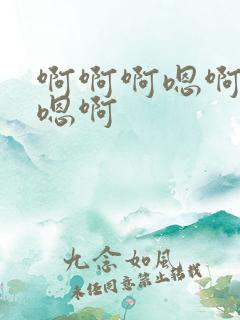 啊啊啊嗯啊
嗯啊
九念如风
未经同意禁止转载